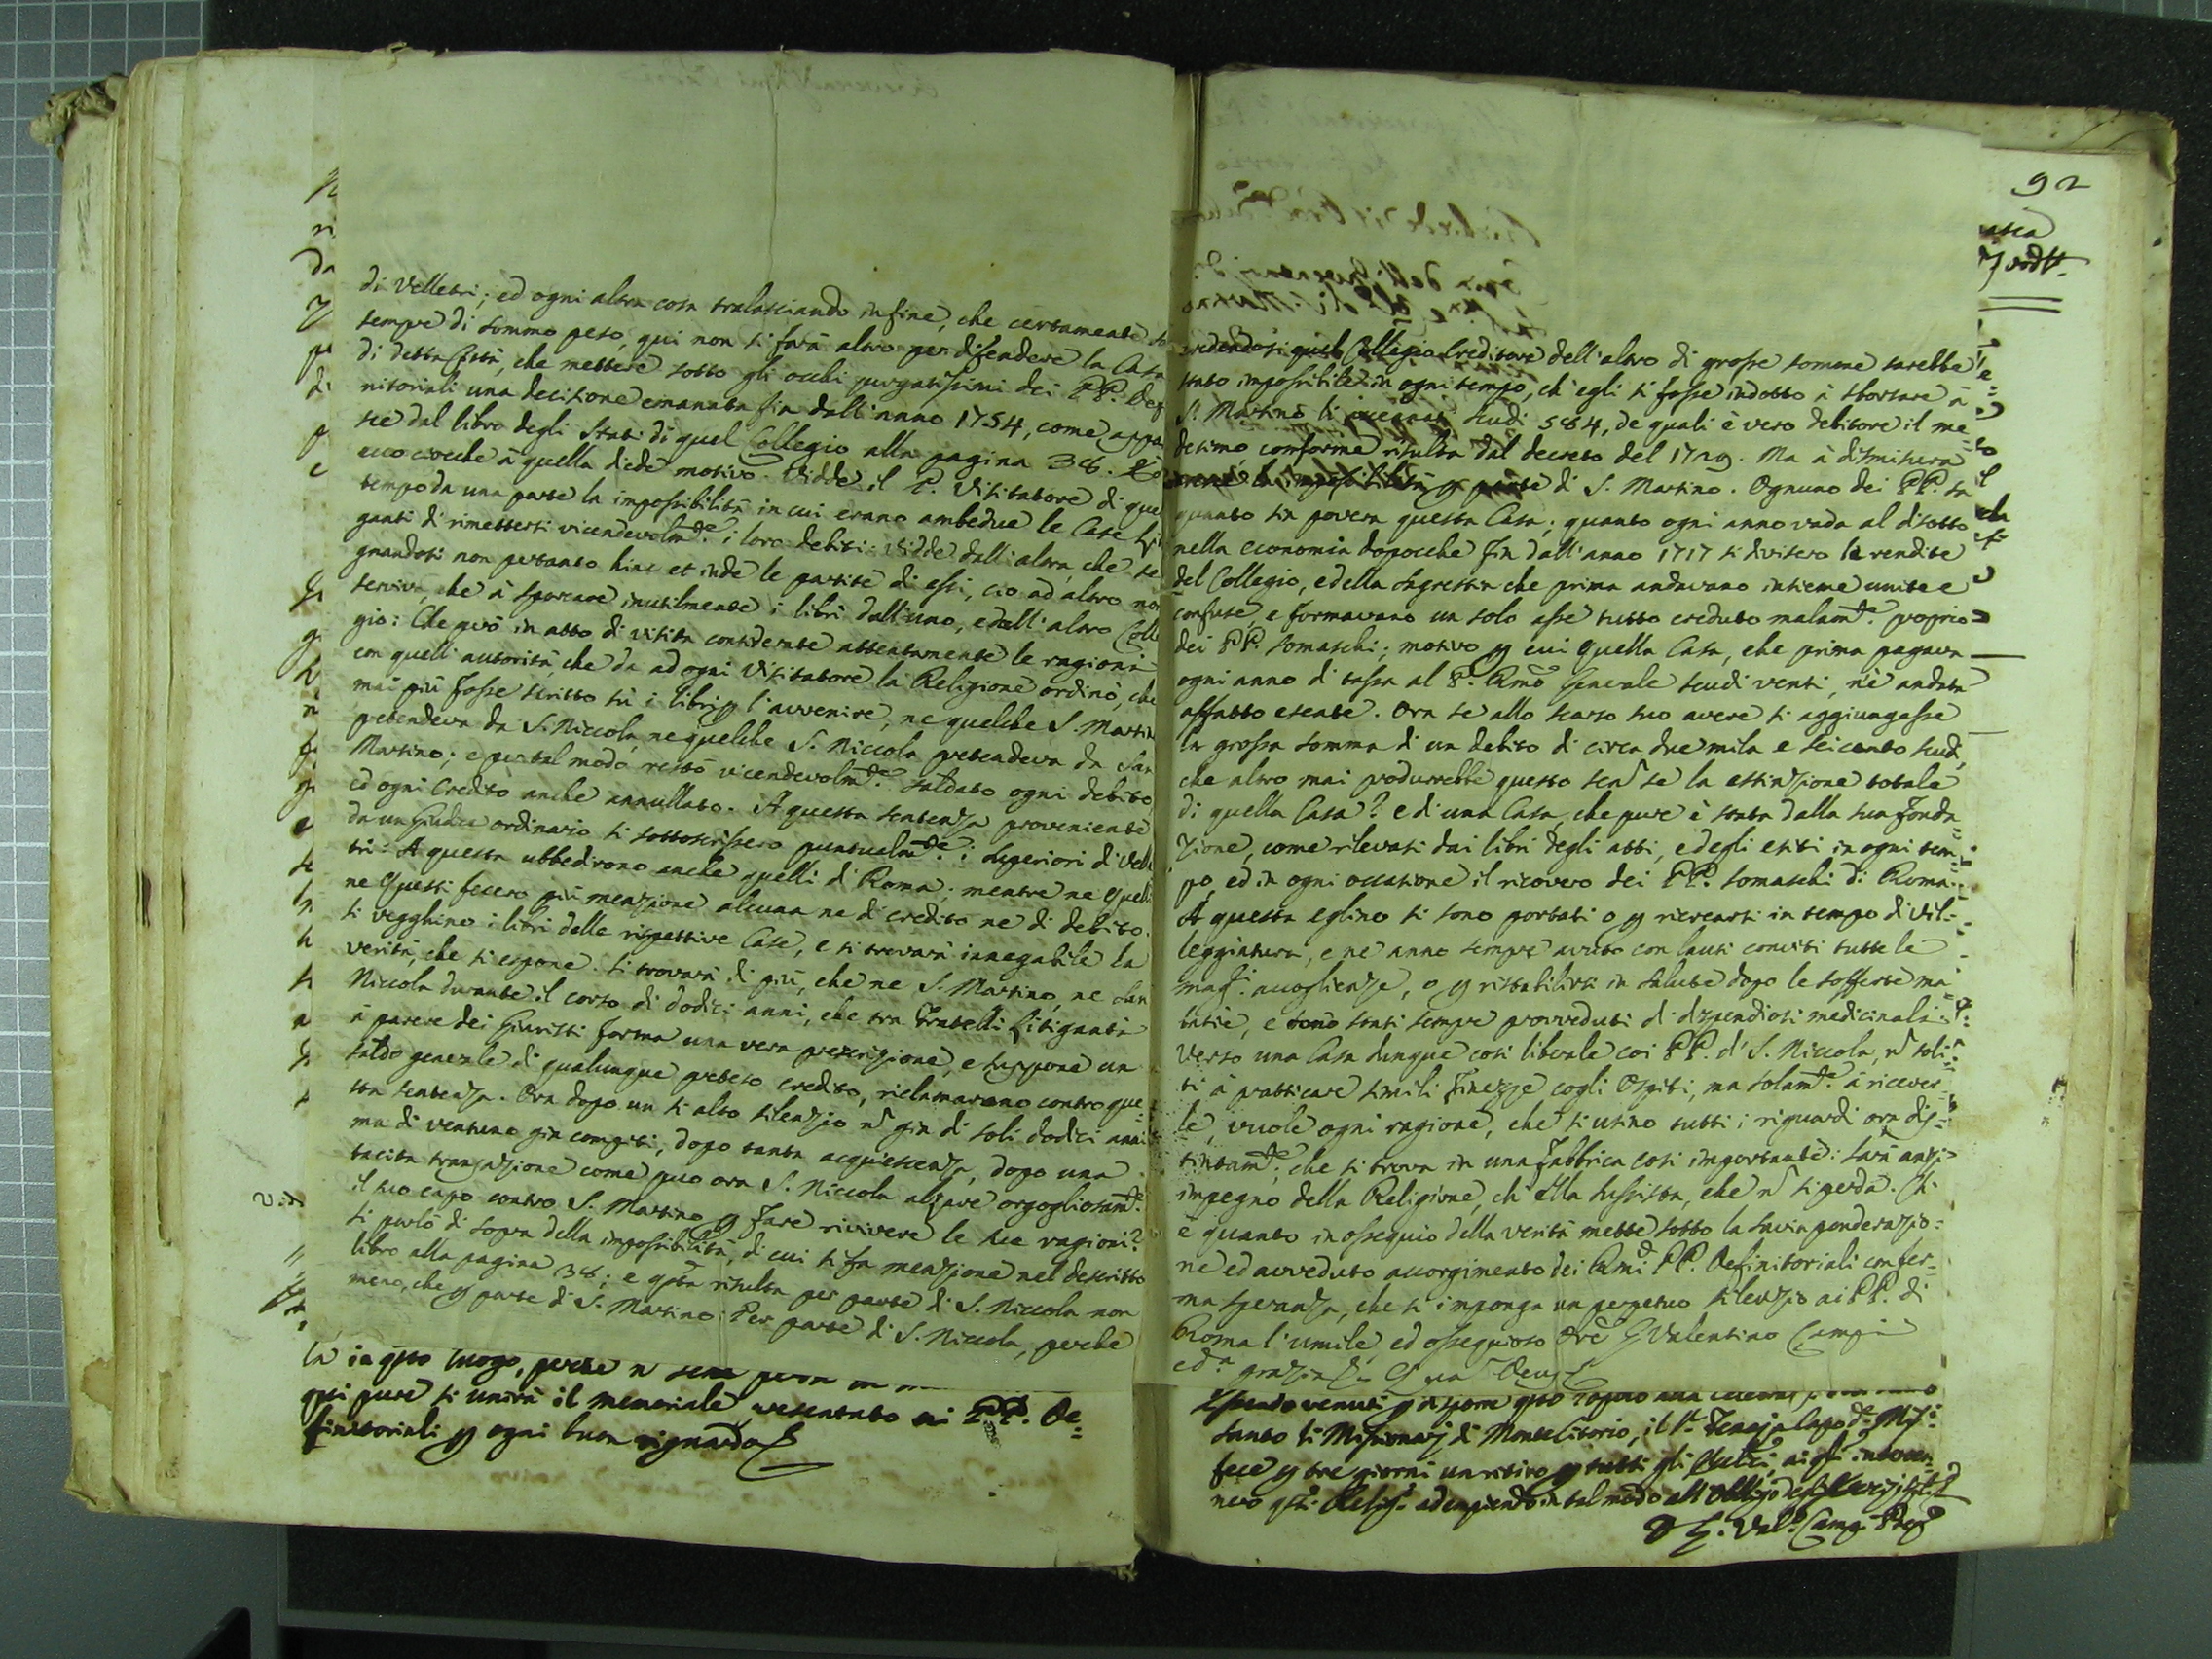 di Velletri; ed ogni altra cosa tralasciando infine, che certamente
sempre di sommo peso, qui non si farà altro per difendere la Casa
di detta Città, che mettere sotto gli occhi purgatissimi dei PP. Def
nitoriali una decisione emanata fin dall'anno 1754, come appa
sce dal libro degli Stati di quel Collegio alla pagina 38.
ecco ciocche à quella diede motivo. Vidde il P. Visitatore di que
tempo da una parte la impossibilità in cui erano ambedue le Case Liti
ganti di rimettersi vicendevolm.te i loro debiti: Vidde dall'altra, che se
gnandosi non pertanto hinc et inde le partite di essi, ciò ad altro non
serviva, che à sporcare inutilmente i libri dall'uno, e dall'altro Colle
gio: Che però in atto di visita considerate attentamente le ragioni
con quell'autorità, che da ad ogni Visitatore la Religione ordinò, che
mai più fosse scritto sù i libri p l'avvenire, ne quelche S. Martin
pretendeva da S. Niccola, ne quelche S. Niccola pretendeva da San
Martino; e per tal modo restò vicendevolm.te saldato ogni debito,
ed ogni Credito anche annullato. A questa sentenza proveniente
da un Giudice ordinario si sottoscrissero puntualm.te i Superiori di Velle
tri: A questa ubbedirono anche quelli di Roma; mentre ne Quelli
ne Questi fecero più menzione alcuna ne di credito ne di debito.
si vegghino i libri delle rispettive Case, e si trovarà innegabile la
verità, che si espone. Si trovarà di più, che ne S. Martino, ne San
Niccola durante il corso di dodici anni, che tra Fratelli Litiganti
à parere dei Giuristi forma una vera prescrizione, e suppone un
saldo generale di qualunque preteso credito, riclamarono contro que
sta sentenza. Ora dopo un sì alto silenzio n già di soli dodici anni
ma di ventuno già compiti, dopo tanta acquiescenza, dopo una
tacita transazione come può ora S. Niccola alzare orgogliosam.te
il suo capo contro S. Martino p fare rivivere le sue ragioni?
si parlò di sopra della impossibilità, di cui si fa menzione nel descritto
libro alla pagina 38; e qsta risulta per parte di S. Niccola non
meno, che p parte di S. Martino: Per parte di S. Niccola, perche
in qsto luogo, perche n
qui pure si unirà il memoriale presentato ai PP. De=
finitoriali p ogni buon riguardo
92
credendosi quel Collegio Creditore dell'altro di grosse somme sarebbe
stato impossibile in ogni tempo, ch'egli si fosse indotto à sborsare à
S. Martino li scudi 584, de quali è vero debitore il me
desimo conforme risulta dal decreto del 1729. Ma à dismisura
la impossibilità p parte di S. Martino. Ognuno dei PP. sa
quanto sia povera questa Casa; quanto ogni anno vada al disotto
nella economia dopocche fin dall'anno 1717 si divisero le rendite
del Collegio, e della Sagrestia che prima andavano insieme unite e
confuse, e formavano un solo asse tutto creduto malam.te proprio
dei PP. Somaschi; motivo p cui quella Casa, che prima pagava
ogni anno di tassa al P. Rmo Generale scudi venti, n'è andata
affatto esente. Ora se allo scarso suo avere si aggiungesse
la grossa somma di un debito di circa due mila e seicento scudi,
che altro mai produrrebbe questo sen se la estinzione totale
di quella Casa? e di una Casa, che pure è stata dalla sua fonda
zione, come rilevasi dai libri degli atti, e degli esiti in ogni tem
po, ed in ogni occasione il ricovero dei PP. Somaschi di Roma.
A questa eglino si sono portati o p ricrearsi in tempo di vil=
leggiatura, e ne anno sempre avuto con lauti conviti tutte le
mass.e accoglienze, o p ristabilirsi in salute dopo le sofferte ma
lattie, e sono stati sempre provveduti di dispendiosi medicinali.
Verso una Casa dunque così liberale coi PP. di S. Niccola, n soli
ti à pratticare simili finezze cogli Ospiti, ma solam.te à ricever
le, vuole ogni ragione, che si usino tutti i riguardi ora dis=
tintam.te che si trova in una Fabbrica così importante: sarà anzi
impegno della Religione, ch'ella sussista, che n si perda. Ch.
è quanto in ossequio della verità mette sotto la savia ponderazio=
ne ed avveduto accorgimento dei Rmi PP. Definitoriali con fer=
ma speranza, che s'imponga un perpetuo silenzio ai PP. di
Roma l'umile, ed ossequioso Ore G Valentino Campi
ed.a grazia
Essendo venuti p disporre qsto Popolo alla
Santo li Missionarj di Monte Citorio, il
fece p tre giorni un ritiro p tutti gli interven
nero qsti Relig.i adempiendo in tal modo all'obbligo degl'Esercizj
D G. Val.o Camp. Prep.o